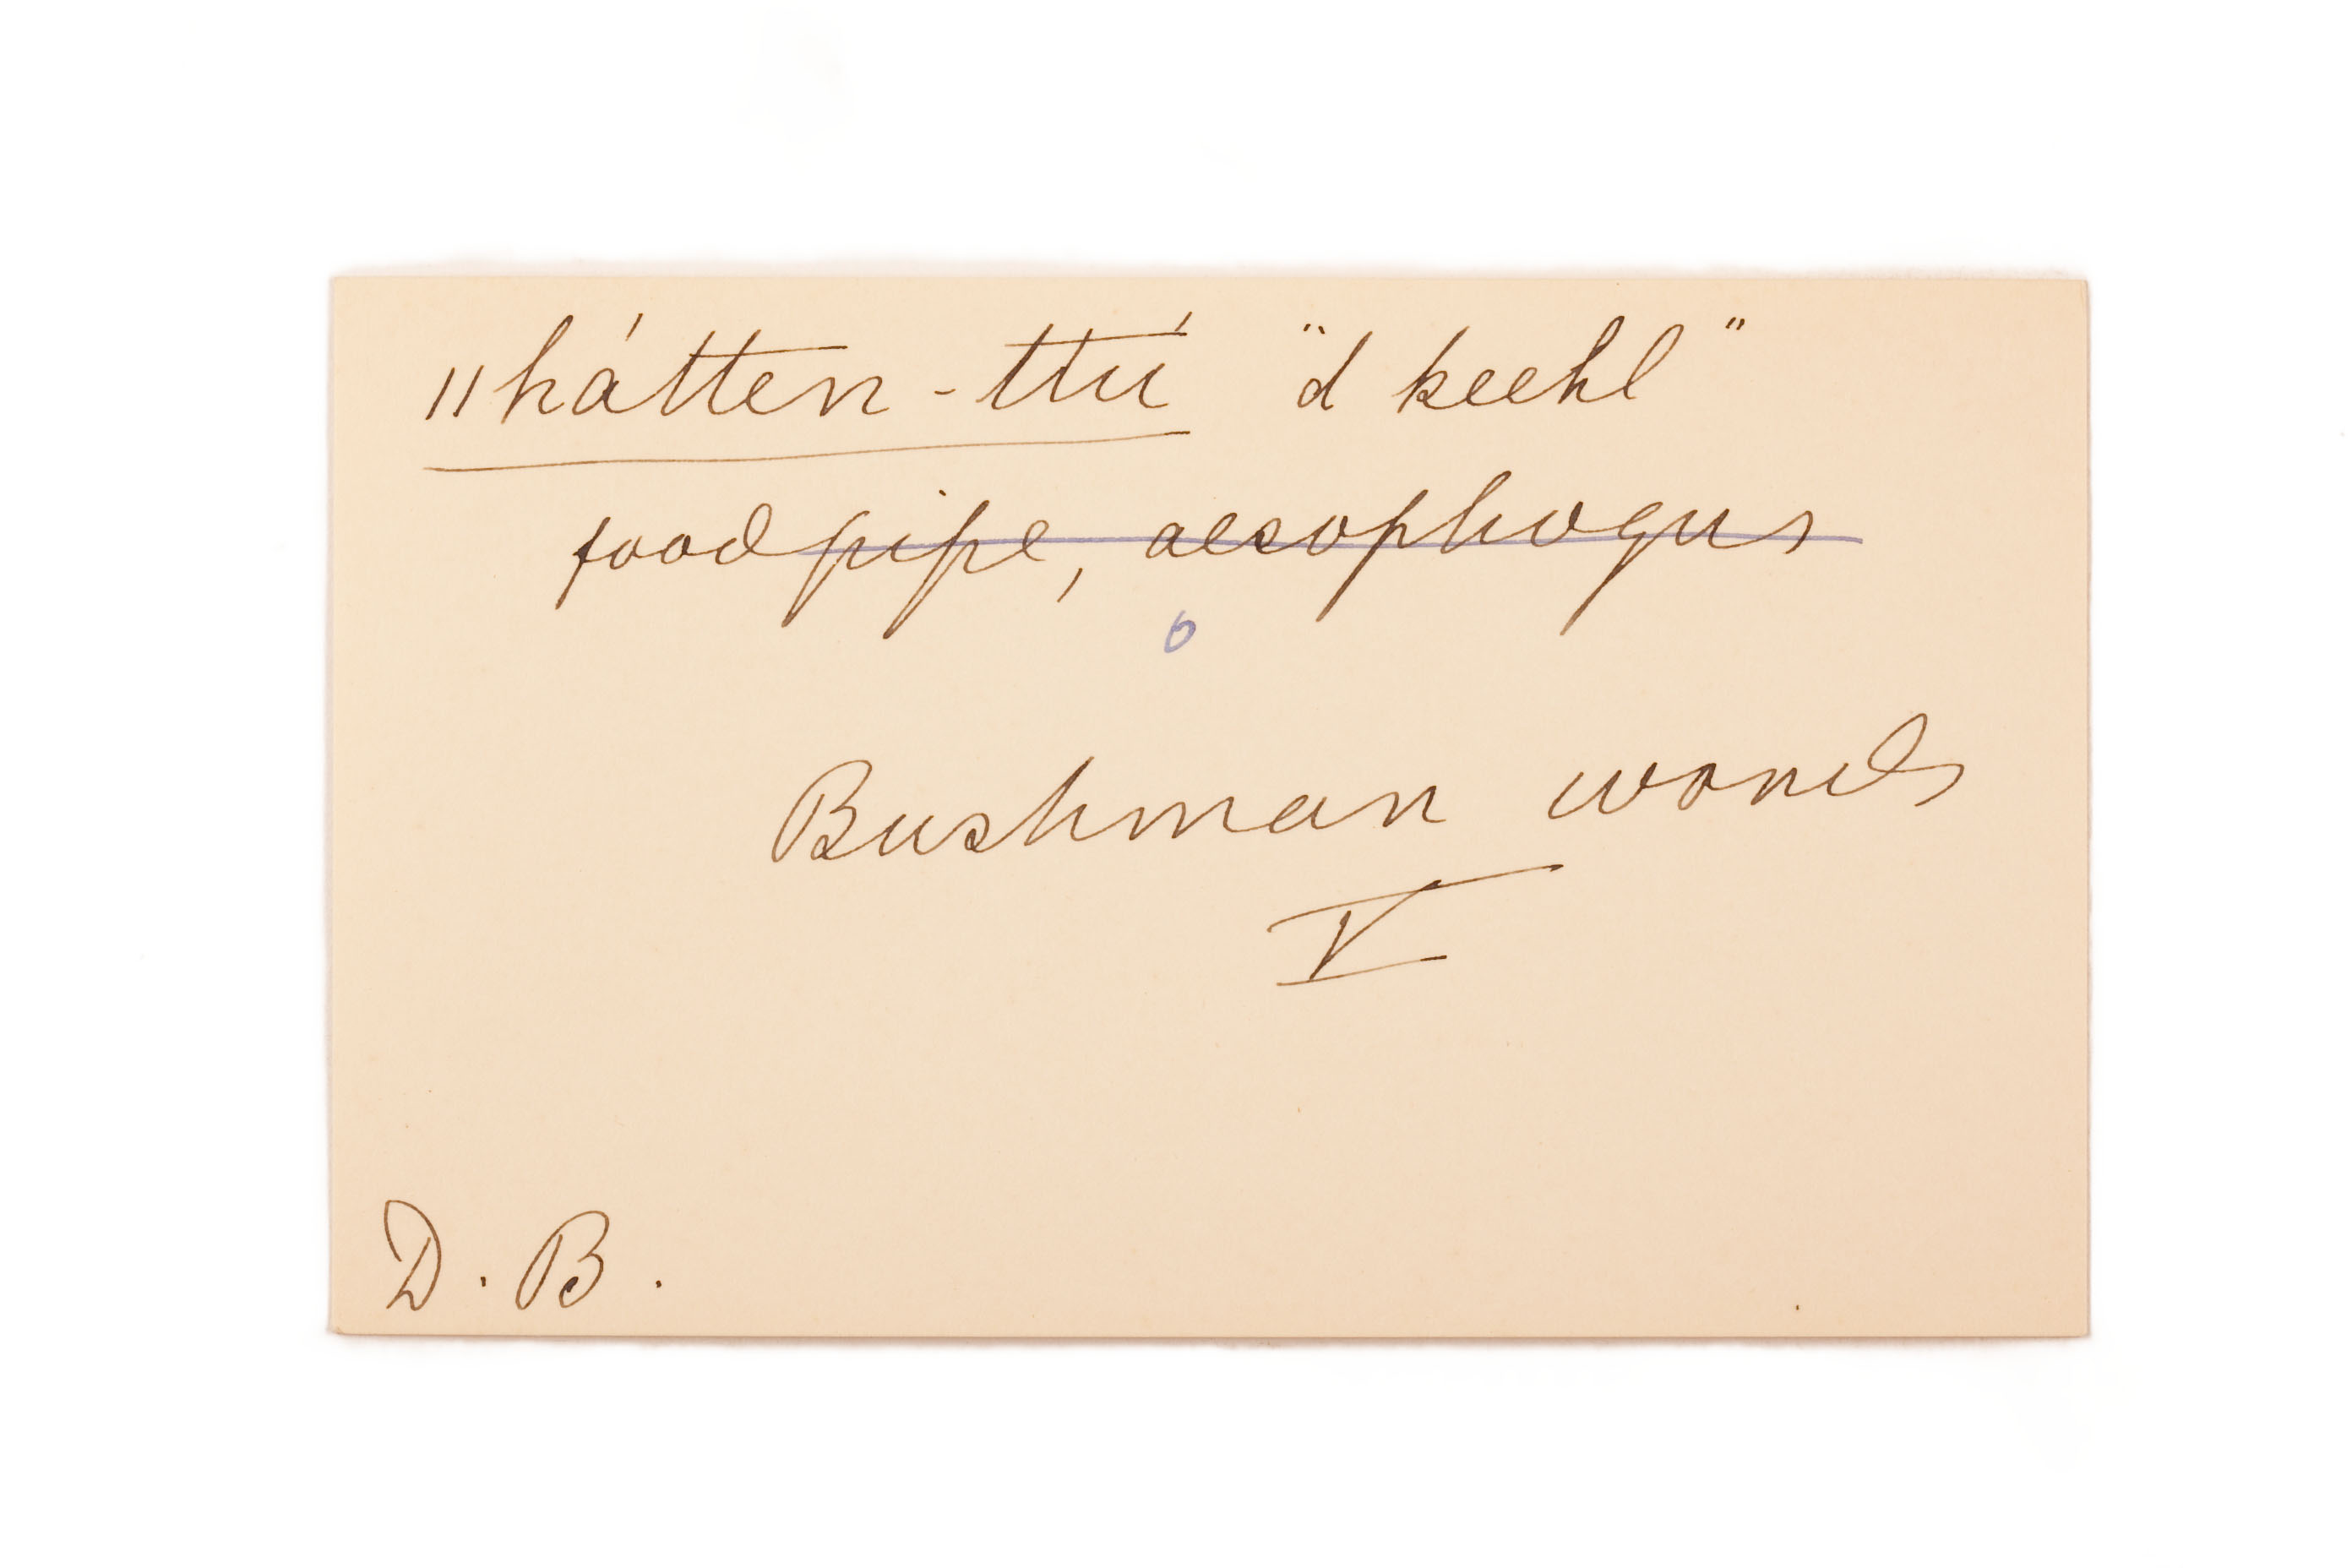 ǁhátten-ttú "d keehl"
foodpipe, aesophogus
6
Bushman words
V
D. B.